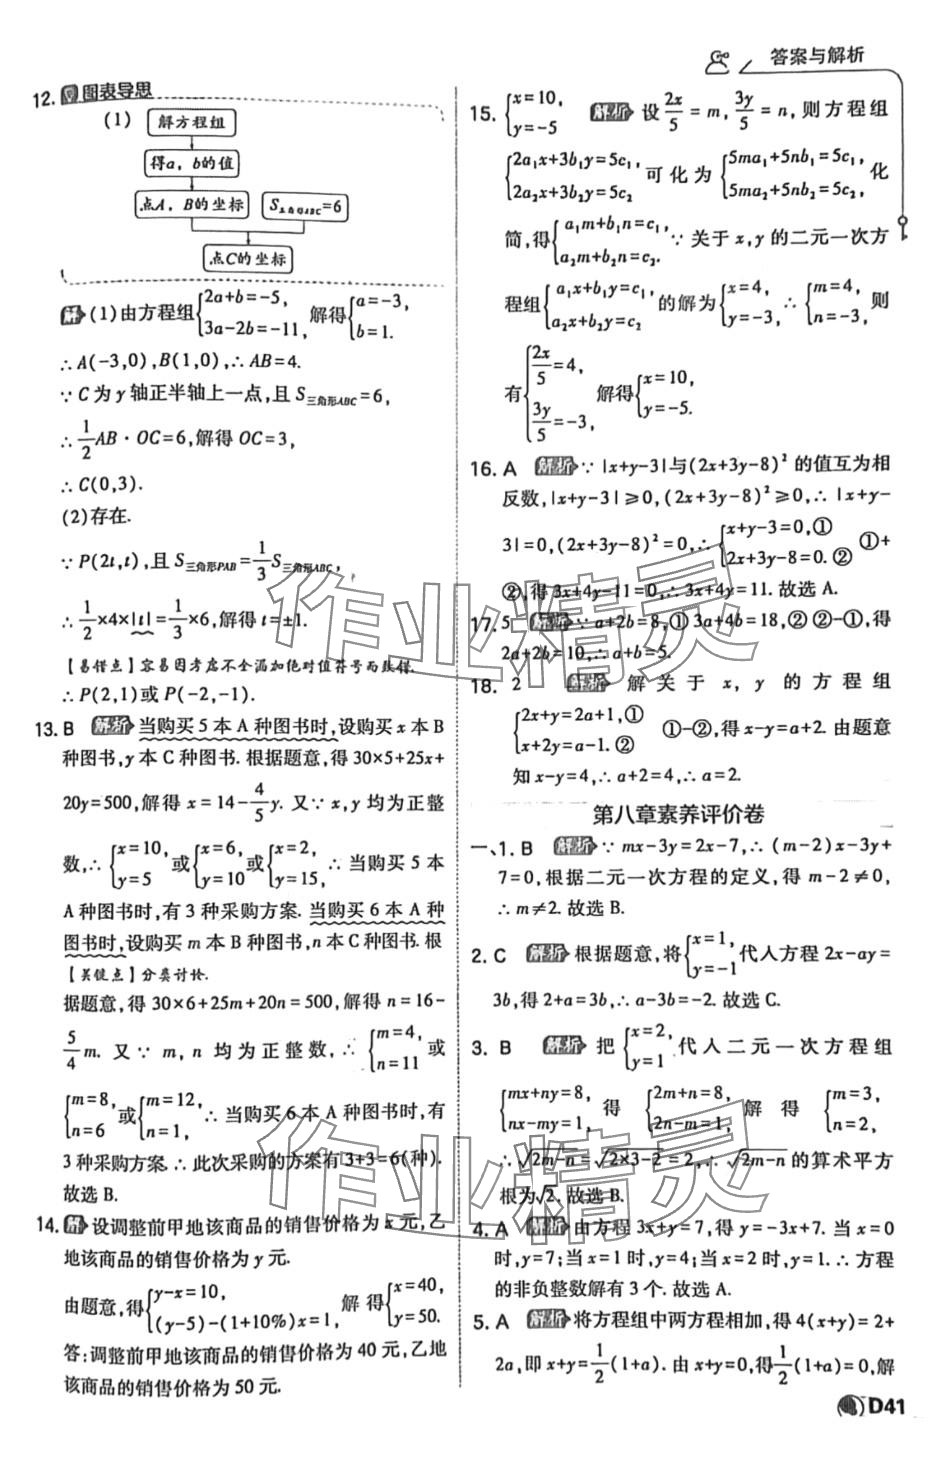 答案与解析
12. 图表导思
(1) 解方程组
得a，b的值
点A，B的坐标 S三角形ABC=6
点C的坐标
解 (1)由方程组{2a+b=-5, 3a-2b=-11, 解得{a=-3, b=1.
∴A(-3,0),B(1,0),∴AB=4.
∵C为y轴正半轴上一点,且S三角形ABC=6,
∴1/2AB·OC=6,解得OC=3,
∴C(0,3).
(2)存在.
∵P(2t,t),且S三角形PAB=1/3S三角形ABC,
∴1/2×4×|t|=1/3×6,解得t=±1.
【易错点】容易因考虑不全漏加绝对值符号而致错.
∴P(2,1)或P(-2,-1).
13. B 解析 当购买5本A种图书时,设购买x本B
种图书,y本C种图书.根据题意,得30×5+25x+
20y=500,解得x=14-4/5y.又∵x,y均为正整
数,∴{x=10, y=5或{x=6, y=10或{x=2, y=15,∴当购买5本
A种图书时,有3种采购方案.当购买6本A种
图书时,设购买m本B种图书,n本C种图书.根
【关键点】分类讨论.
据题意,得30×6+25m+20n=500,解得n=16-
5/4m.又∵m,n均为正整数,∴{m=4, n=11或
{m=8, n=6或{m=12, n=1,∴当购买6本A种图书时,有
3种采购方案.∴此次采购的方案有3+3=6(种).
故选B.
14. 解 设调整前甲地该商品的销售价格为x元,乙
地该商品的销售价格为y元.
由题意,得{y-x=10, (y-5)-(1+10%)x=1, 解得{x=40, y=50.
答:调整前甲地该商品的销售价格为40元,乙地
该商品的销售价格为50元.
15. {x=10, y=-5 解析 设2x/5=m,3y/5=n,则方程组
{2a₁x+3b₁y=5c₁, 2a₂x+3b₂y=5c₂可化为{5ma₁+5nb₁=5c₁, 5ma₂+5nb₂=5c₂,化
简,得{a₁m+b₁n=c₁, a₂m+b₂n=c₂.∵关于x,y的二元一次方
程组{a₁x+b₁y=c₁, a₂x+b₂y=c₂的解为{x=4, y=-3,∴{m=4, n=-3,则
有{2x/5=4, 3y/5=-3,解得{x=10, y=-5.
16. A 解析 ∵|x+y-3|与(2x+3y-8)²的值互为相
反数,|x+y-3|≥0,(2x+3y-8)²≥0,∴|x+y-
3|=0,(2x+3y-8)²=0,∴{x+y-3=0,① 2x+3y-8=0.② ①+
②,得3x+4y-11=0,∴3x+4y=11.故选A.
17. 5 解析 ∵a+2b=8,① 3a+4b=18,② ②-①,得
2a+2b=10,∴a+b=5.
18. 2 解析 解关于x,y的方程组
{2x+y=2a+1,① x+2y=a-1.② ①-②,得x-y=a+2.由题意
知x-y=4,∴a+2=4,∴a=2.
第八章素养评价卷
一、1. B 解析 ∵mx-3y=2x-7,∴(m-2)x-3y+
7=0,根据二元一次方程的定义,得m-2≠0,
∴m≠2.故选B.
2. C 解析 根据题意,将{x=1, y=-1代入方程2x-ay=
3b,得2+a=3b,∴a-3b=-2.故选C.
3. B 解析 把{x=2, y=1代入二元一次方程组
{mx+ny=8, nx-my=1,得{2m+n=8, 2n-m=1,解得{m=3, n=2,
∴√2m-n=√2×3-2=2,∴√2m-n的算术平方
根为√2.故选B.
4. A 解析 由方程3x+y=7,得y=-3x+7.当x=0
时,y=7;当x=1时,y=4;当x=2时,y=1.∴方程
的非负整数解有3个.故选A.
5. A 解析 将方程组中两方程相加,得4(x+y)=2+
2a,即x+y=1/2(1+a).由x+y=0,得1/2(1+a)=0,解
D41
作业精灵
作业精灵